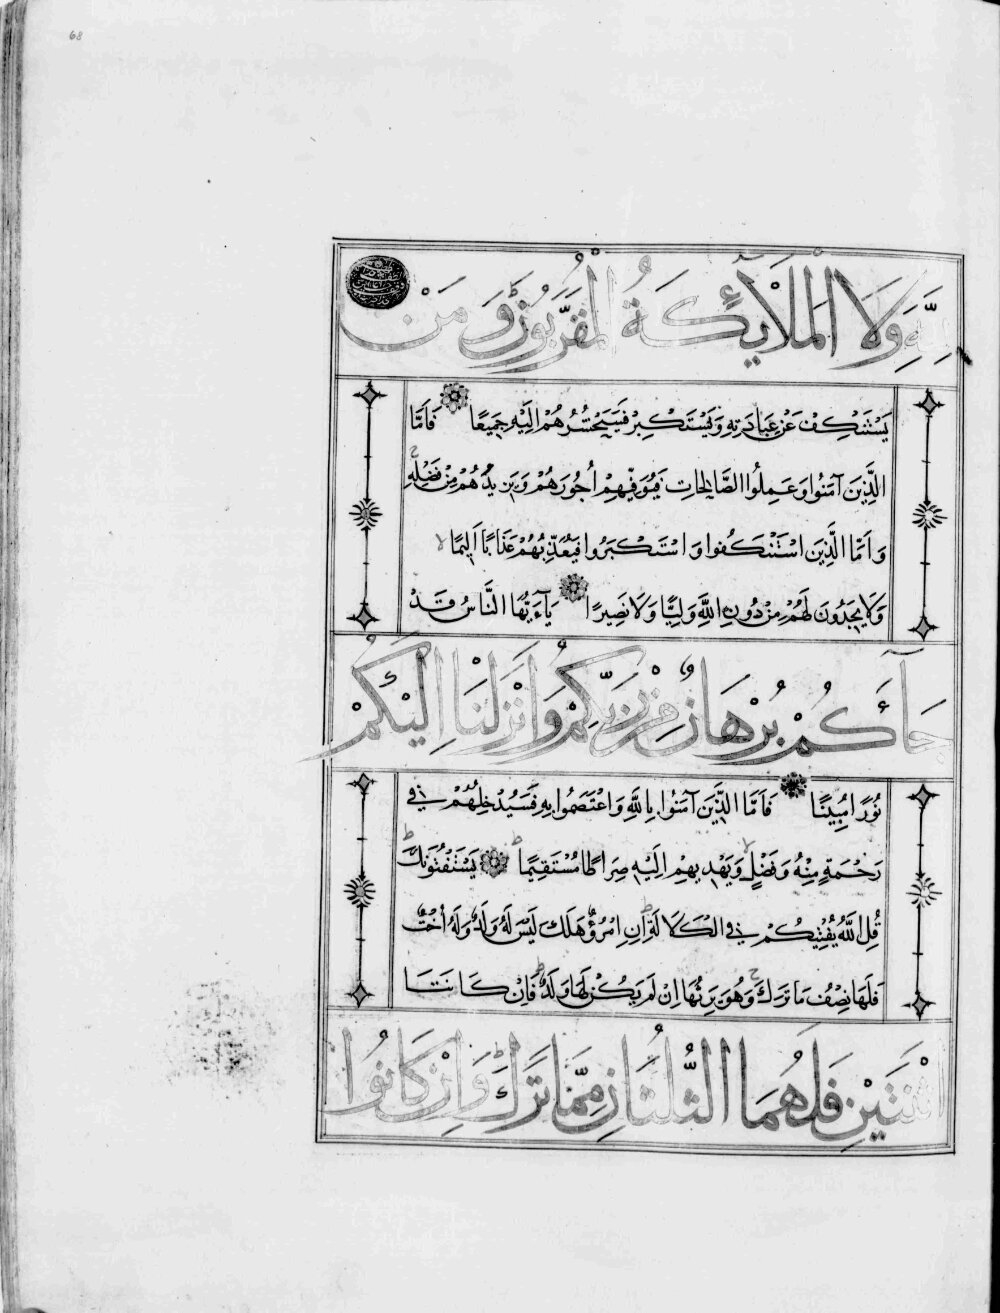 68
لِلَّهِ وَلَا الْمَلَائِكَةُ الْمُقَرَّبُونَ وَمَنْ
يَسْتَنْكِفْ عَنْ عِبَادَتِهِ وَيَسْتَكْبِرْ فَسَيَحْشُرُهُمْ إِلَيْهِ جَمِيعًا فَأَمَّا
الَّذِينَ آمَنُوا وَعَمِلُوا الصَّالِحَاتِ فَيُوَفِّيهِمْ أُجُورَهُمْ وَيَزِيدُهُمْ مِنْ فَضْلِهِ
وَأَمَّا الَّذِينَ اسْتَنْكَفُوا وَاسْتَكْبَرُوا فَيُعَذِّبُهُمْ عَذَابًا أَلِيمًا
وَلَا يَجِدُونَ لَهُمْ مِنْ دُونِ اللَّهِ وَلِيًّا وَلَا نَصِيرًا يَآءَيُّهَا النَّاسُ قَدْ
جَآءَكُمْ بُرْهَانٌ مِنْ رَبِّكُمْ وَأَنْزَلْنَا إِلَيْكُمْ
نُورًا مُبِينًا فَأَمَّا الَّذِينَ آمَنُوا بِاللَّهِ وَاعْتَصَمُوا بِهِ فَسَيُدْخِلُهُمْ فِي
رَحْمَةٍ مِنْهُ وَفَضْلٍ وَيَهْدِيهِمْ إِلَيْهِ صِرَاطًا مُسْتَقِيمًا يَسْتَفْتُونَكَ
قُلِ اللَّهُ يُفْتِيكُمْ فِي الْكَلَالَةِ إِنِ امْرُؤٌ هَلَكَ لَيْسَ لَهُ وَلَدٌ وَلَهُ أُخْتٌ
فَلَهَا نِصْفُ مَا تَرَكَ وَهُوَ يَرِثُهَا إِنْ لَمْ يَكُنْ لَهَا وَلَدٌ فَإِنْ كَانَتَا
اثْنَتَيْنِ فَلَهُمَا الثُّلُثَانِ مِمَّا تَرَكَ وَإِنْ كَانُوا